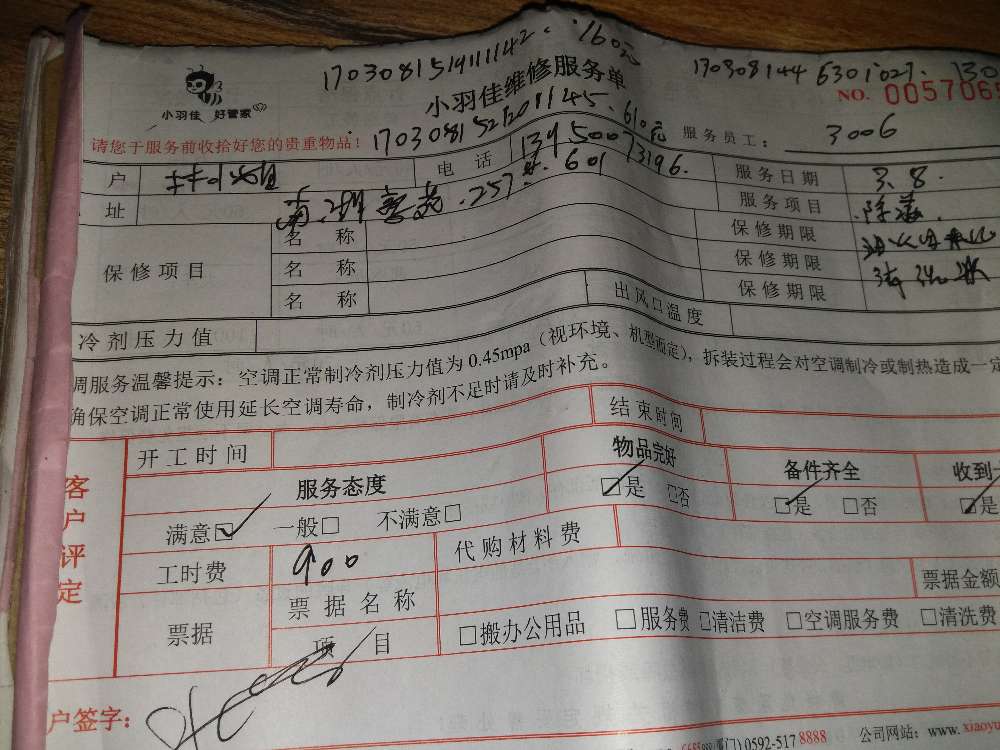 1703081519111142. 160元
170308144 6301027. 130
小羽佳 好管家
小羽佳维修服务单
NO. 0057065
17030815212011145. 610元
请您于服务前收拾好您的贵重物品!
服务员工: 3006
户 电话 13950073196. 服务日期 3.8.
址 257 601 服务项目 除
保修项目 名称 保修期限
名称 保修期限
名称 保修期限 清洗
冷剂压力值 出风口温度
调服务温馨提示:空调正常制冷剂压力值为0.45mpa(视环境、机型而定),拆装过程会对空调制冷或制热造成一定
确保空调正常使用延长空调寿命,制冷剂不足时请及时补充。
客户评定
开工时间 结束时间
服务态度 物品完好 备件齐全 收到
满意☑ 一般□ 不满意□ ☑是 □否 ☑是 □否 ☑是
工时费 900 代购材料费
票据 票据名称 票据金额
项目 □搬办公用品 □服务费 □清洁费 □空调服务费 □清洗费
户签字:
门)0592-517 8888 公司网站:www.xiaoyu